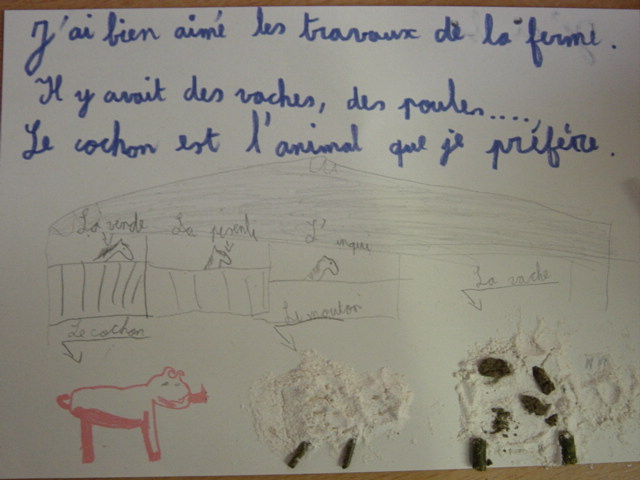 J'ai bien aimé les travaux de la ferme.
Il y avait des vaches, des poules....,
Le cochon est l'animal que je préfère.
La
La
L'
La vache
Le cochon
Le mouton